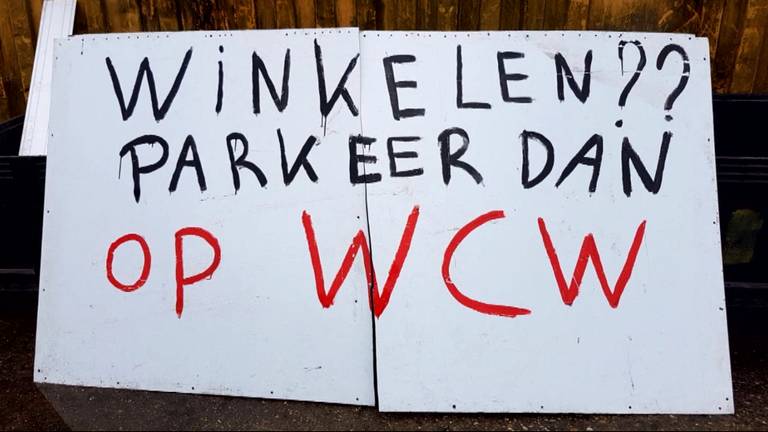 WiNKELEN??
PARKEER DAN
OP WCW